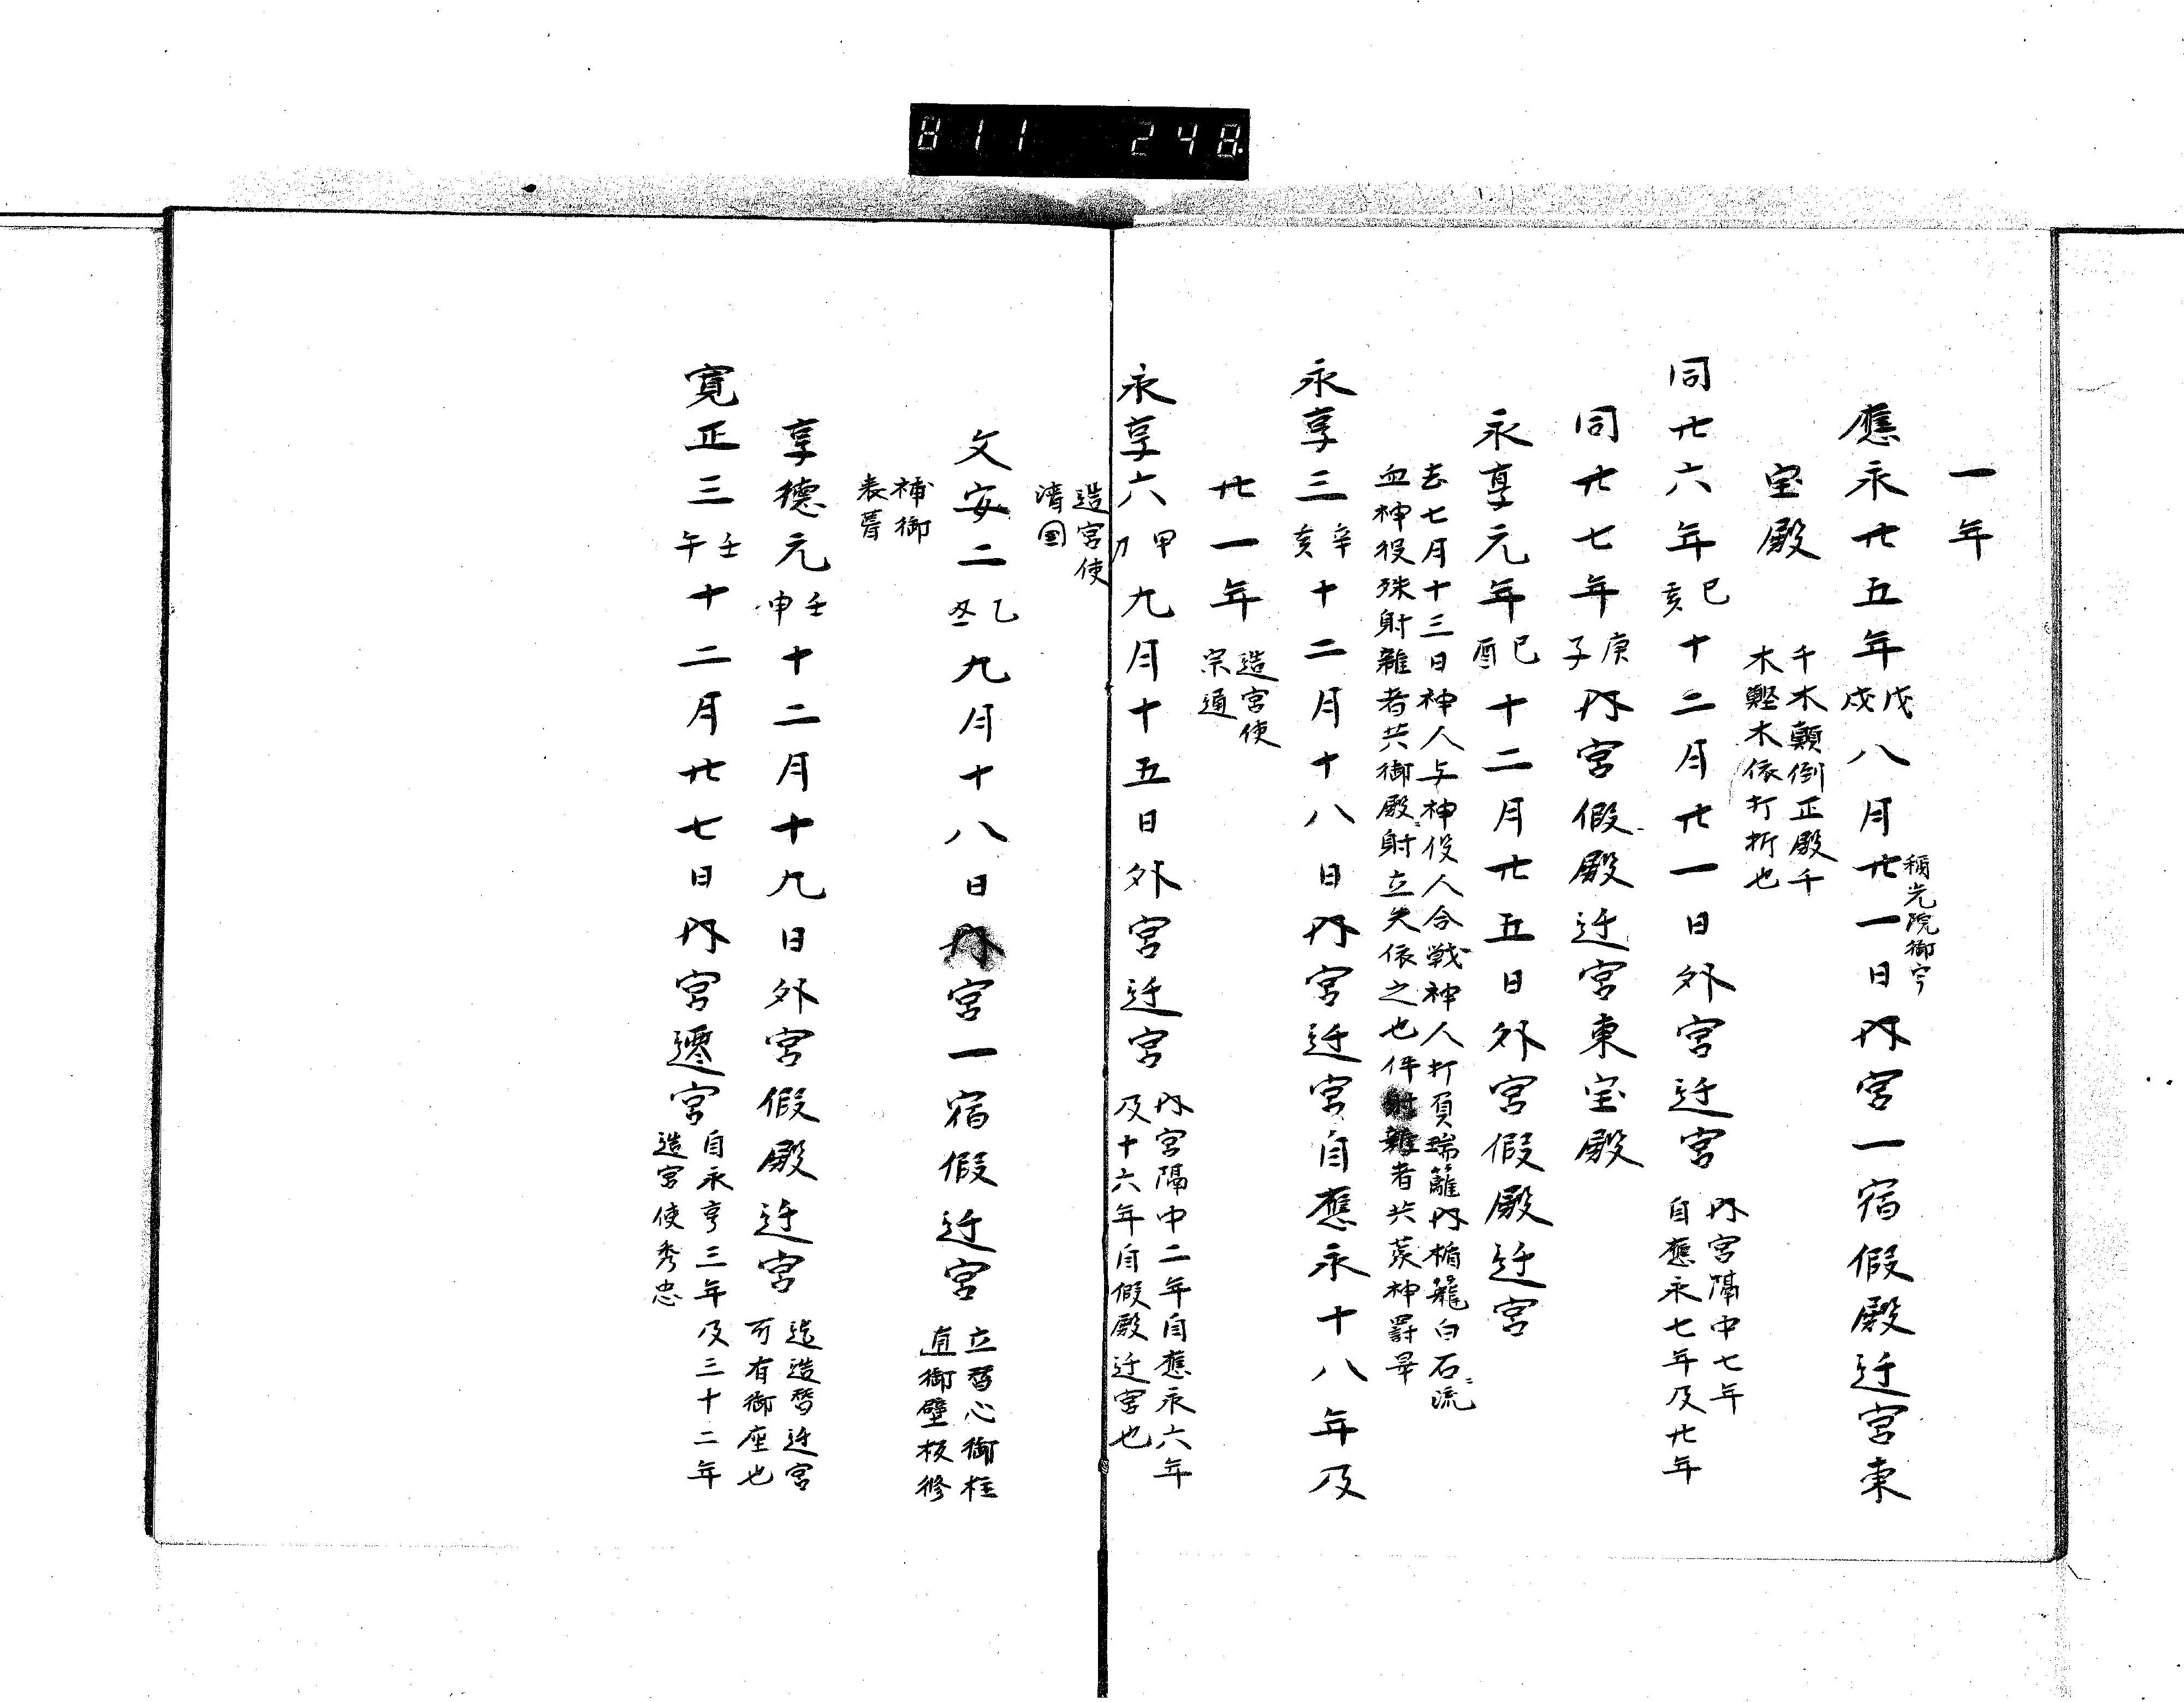 811 248
一年
稱光院御宇
應永廿五年戊戌八月廿一日内宮一宿假殿迁宮東
宝殿
千木顛倒正殿千
木鰹木依打折也
同廿六年巳亥十二月廿一日外宮迁宮
内宮隔中七年
自應永七年及廿年
同廿七年庚子内宮假殿迁宮東宝殿
永享元年巳酉十二月廿五日外宮假殿迁宮
去七月十三日神人与神役人合戦神人打負瑞籬内楯籠白石流
血神役殊射雜者共御殿射立矢依之也件射雜者共蒙神罸畢
永享三辛亥十二月十八日内宮迁宮自應永十八年及
廿一年
造宮使
宗通
永享六甲九月十五日外宮迁宮
内宮隔中二年自應永六年
及十六年自假殿迁宮也
造宮使
清国
文安二乙丑九月十八日内宮一宿假迁宮
立替心御柱
直御壁板修
補御
表葺
享德元壬申十二月十九日外宮假殿迁宮
造替迁宮
可有御座也
寛正三壬午十二月廿七日内宮遷宮
自永亨三年及三十二年
造宮使秀忠